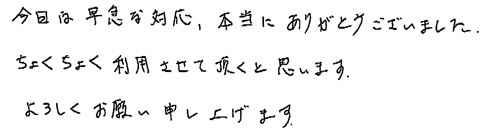 今日は早急な対応，本当にありがとうございました．
ちょくちょく利用させて頂くと思います．
よろしくお願い申し上げます．